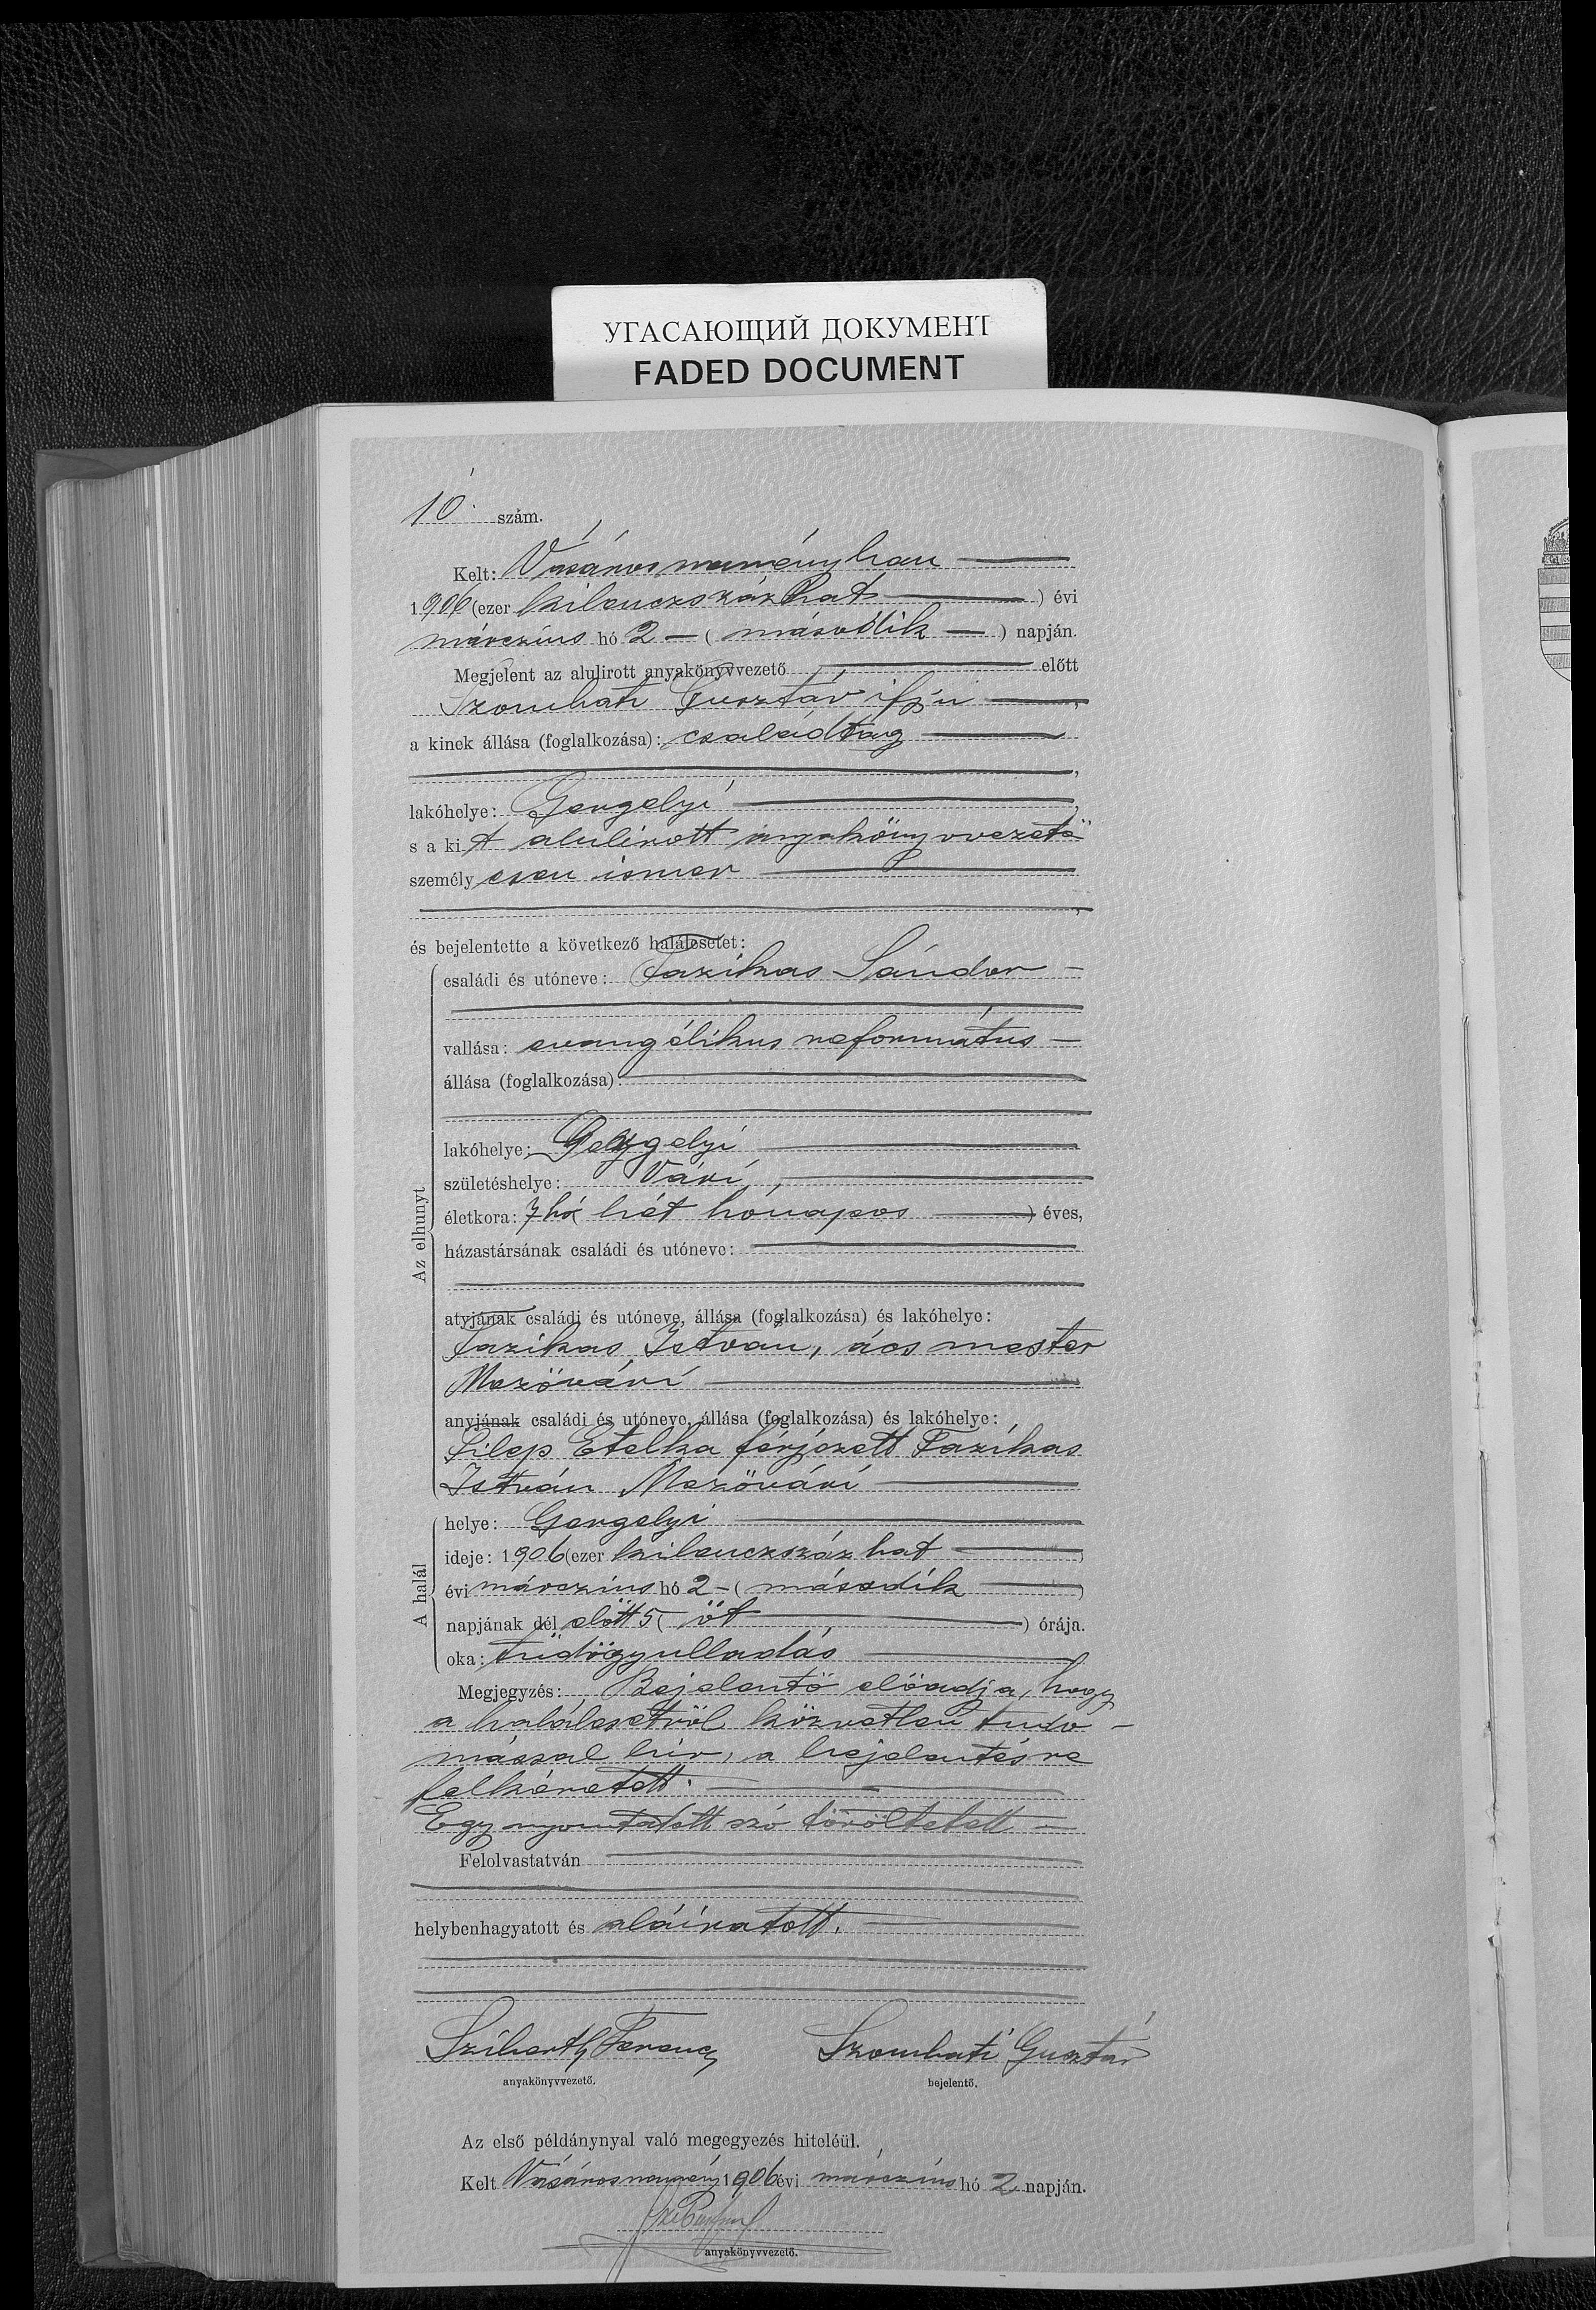 УГАСАЮЩИЙ ДОКУМЕНТ
FADED DOCUMENT
10. szám.
Kelt: Vásárosnaményban
1906 (ezer kilenczszázhat ) évi
márczius hó 2 - ( második ) napján.
Megjelent az alulirott anyakönyvvezető előtt
Szombati Gusztáv ifjú ,
a kinek állása (foglalkozása): családtag
,
lakóhelye: Gergelyi ,
s a kit alulirott anyakönyvvezető
személyesen ismer
,
és bejelentette a következő halálesetet:
Az elhunyt
családi és utóneve: Fazikas Sándor -
vallása: evangélikus református -
állása (foglalkozása):
lakóhelye: Gergelyi
születéshelye: Vári,
életkora: 7 hó ( hét hónapos ) éves,
házastársának családi és utóneve:
atyjának családi és utóneve, állása (foglalkozása) és lakóhelye:
Fazikas István, ács mester
Mezővári
anyjának családi és utóneve, állása (foglalkozása) és lakóhelye:
Filep Etelka férjezett Fazikas
István Mezővári
A halál
helye: Gergelyi
ideje: 1906 (ezer kilenczszáz hat )
évi márczius hó 2 - ( második )
napjának dél előtt 5 ( öt ) órája.
oka: tüdőgyulladás
Megjegyzés: Bejelentő előadja, hogy
a halálesetről közvetlen tudo-
mással bir, a bejelentésre
felkéretett.
Egy nyomtatott szó töröltetett -
Felolvastatván
helybenhagyatott és aláiratott.
Sziberth Ferencz Szombati Gusztáv
anyakönyvvezető. bejelentő.
Az első példánynyal való megegyezés hiteléül.
Kelt Vásárosnamény 1906 évi márczius hó 2 napján.
anyakönyvvezető.